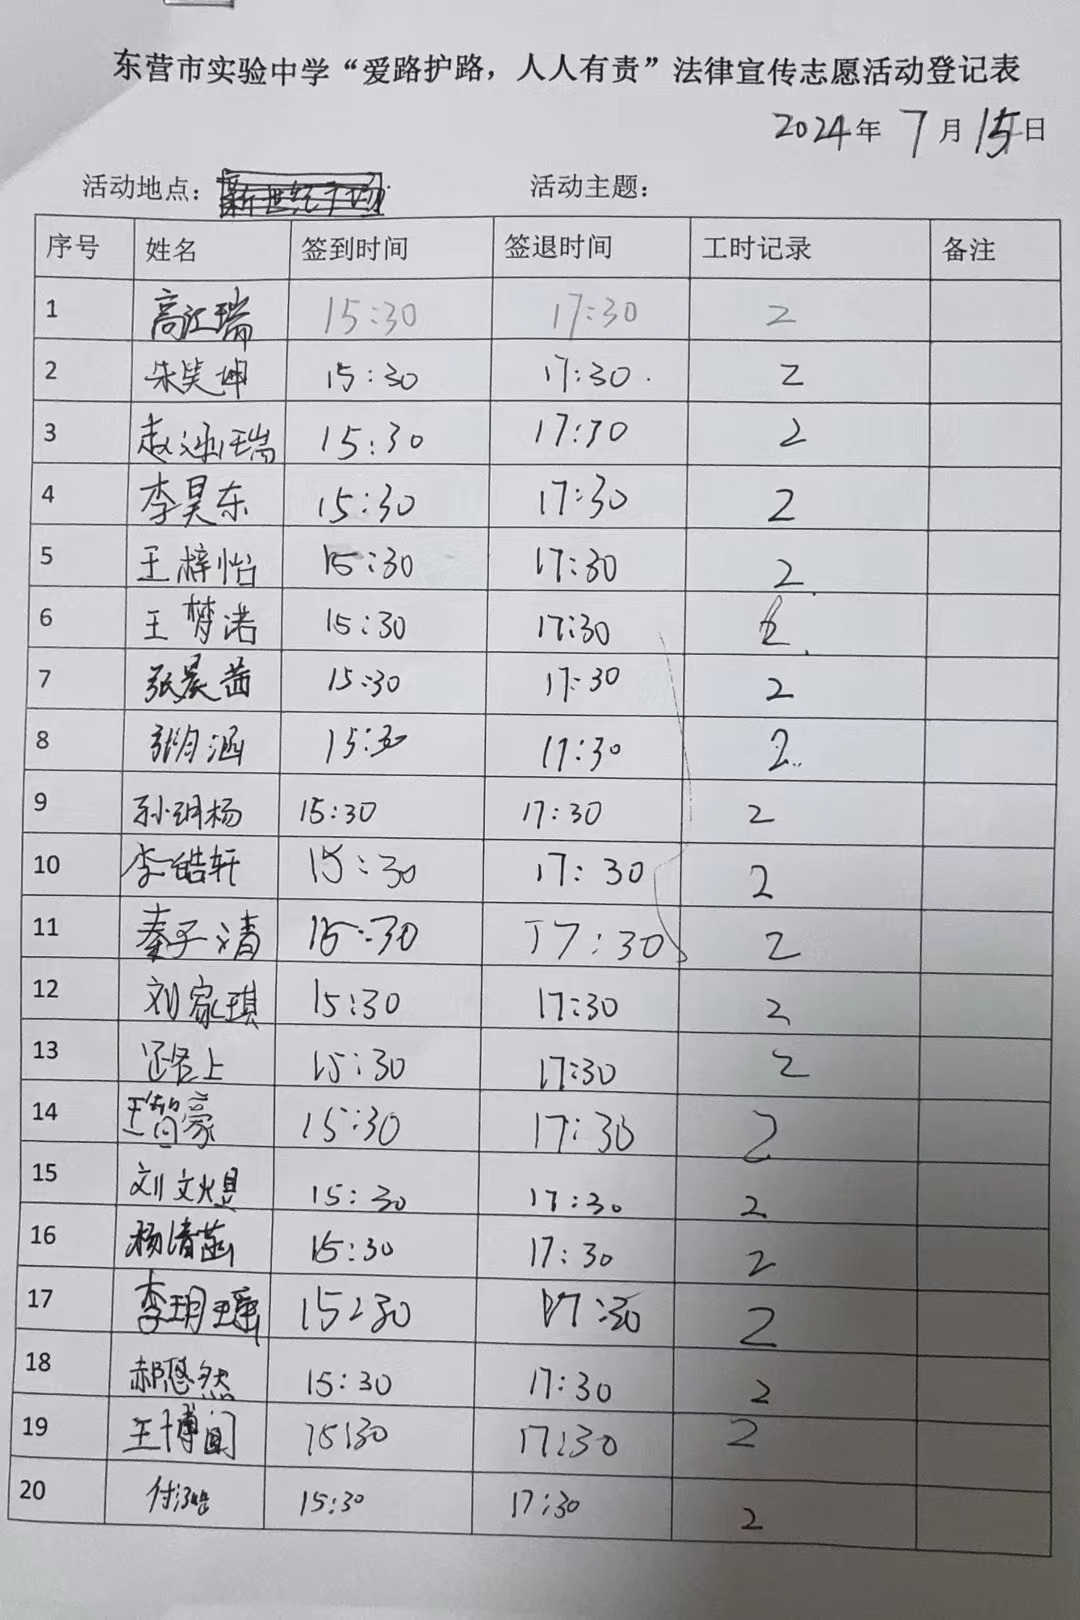 东营市实验中学“爱路护路，人人有责”法律宣传志愿活动登记表
2024年 7月 15日
活动地点： 活动主题：
序号 姓名 签到时间 签退时间 工时记录 备注
1 高江瑞 15:30 17:30 2
2 朱笑坤 15:30 17:30 2
3 赵涵瑞 15:30 17:30 2
4 李昊东 15:30 17:30 2
5 王梓怡 15:30 17:30 2
6 王梦诺 15:30 17:30 2
7 张晨茜 15:30 17:30 2
8 张月涵 15:30 17:30 2
9 孙玥杨 15:30 17:30 2
10 李皓轩 15:30 17:30 2
11 秦子清 15:30 17:30 2
12 刘家琪 15:30 17:30 2
13 路上 15:30 17:30 2
14 王智豪 15:30 17:30 2
15 刘文煜 15:30 17:30 2
16 杨清菡 15:30 17:30 2
17 李玥瑶 15:30 17:30 2
18 郝悠然 15:30 17:30 2
19 王博闻 15:30 17:30 2
20 付 15:30 17:30 2